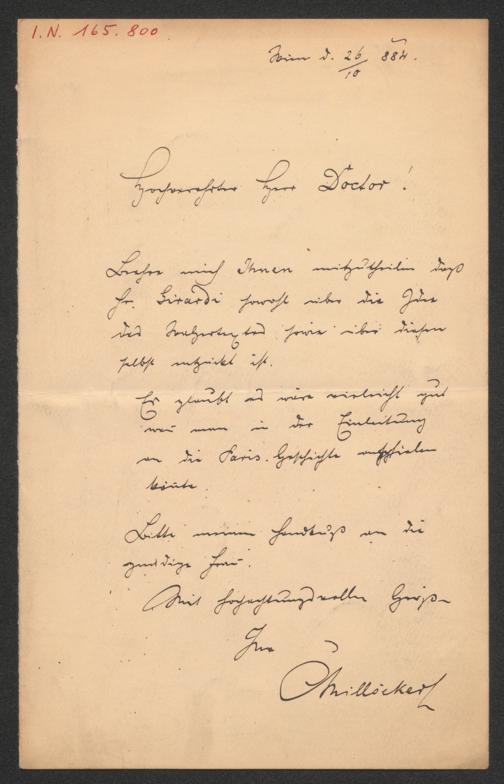 I.N. 165.800
Wien d. 26/10 884.
Hochverehrter Herr Doctor!
Beehre mich Ihnen mitzutheilen daß
Hr. Girardi sowohl über die Idee
des Walzertextes sowie über diesen
selbst entzückt ist.
Er glaubt es wäre vielleicht gut
wen man in der Einleitung
an die Paris-Geschichte anspielen
könte.
Bitte meinen Handkuß an die
gnädige Frau.
Mit hochachtungsvollen Grüßen
Ihr
CMillöcker